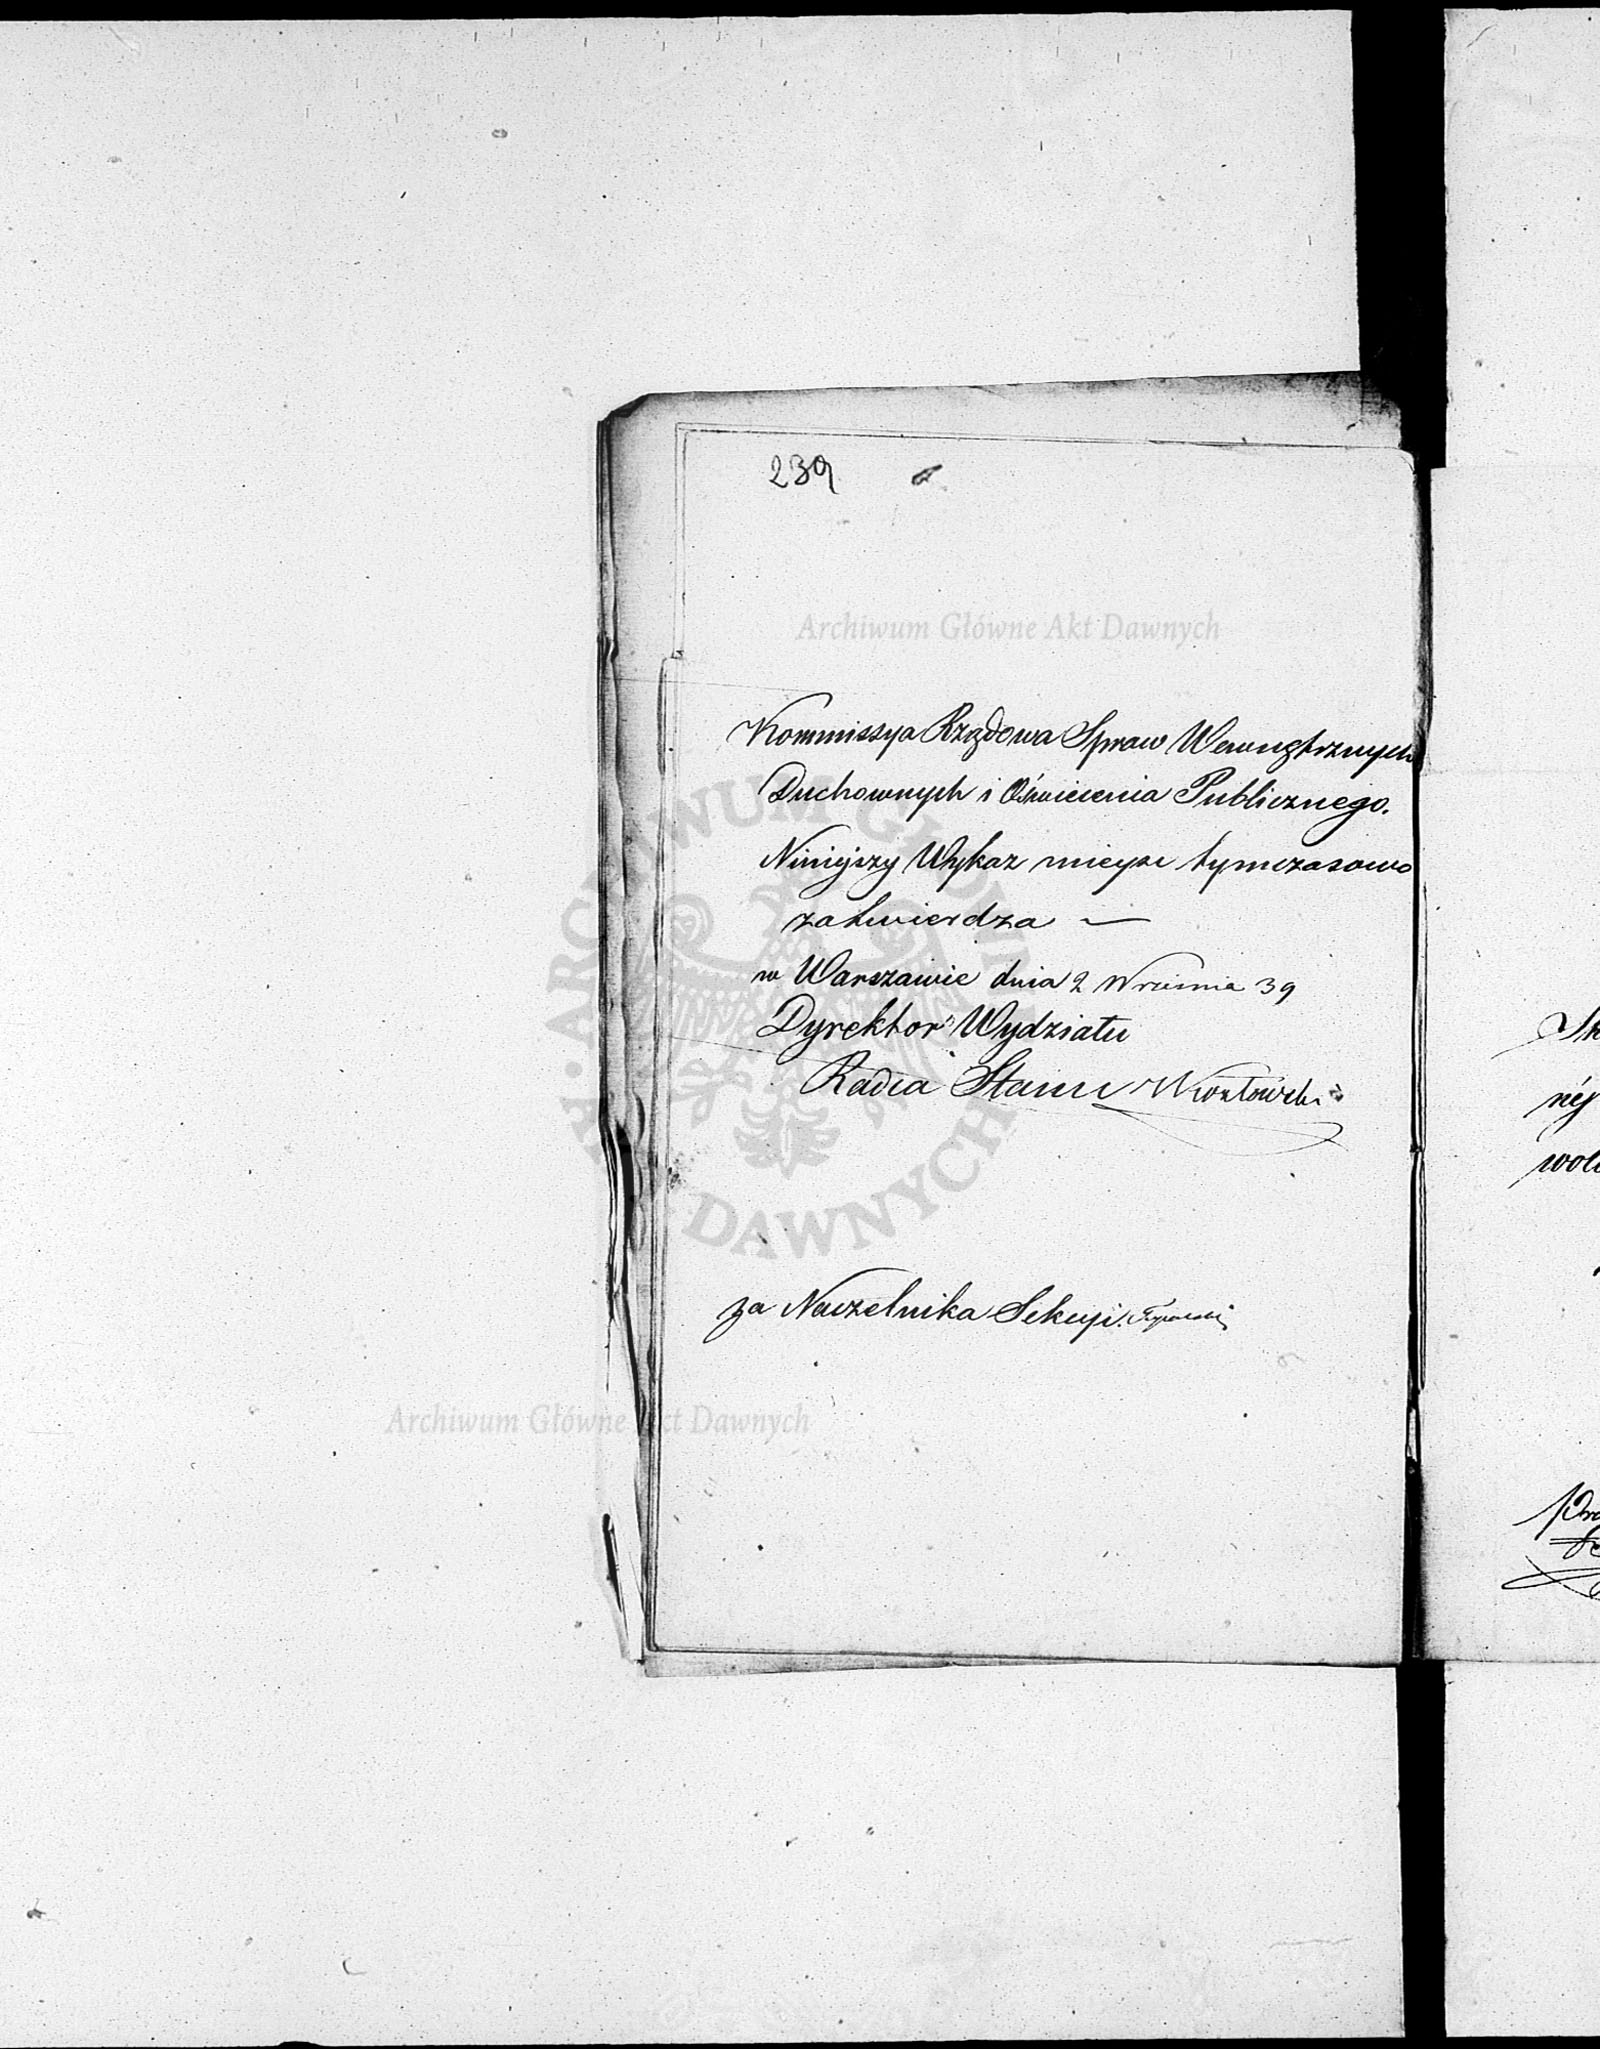 239
Archiwum Główne Akt Dawnych
Kommissya Rządowa Spraw Wewnętrznych
Duchownych i Oświecenia Publicznego.
Niniejszy Wykaz mieysc tymczasowo
zatwierdza —
w Warszawie dnia 2 Września 39
Dyrektor Wydziału
Radca Stanu
ARCHIWUM GŁÓWNE AKT DAWNYCH
za Naczelnika Sekcyi.
Archiwum Główne Akt Dawnych
ney